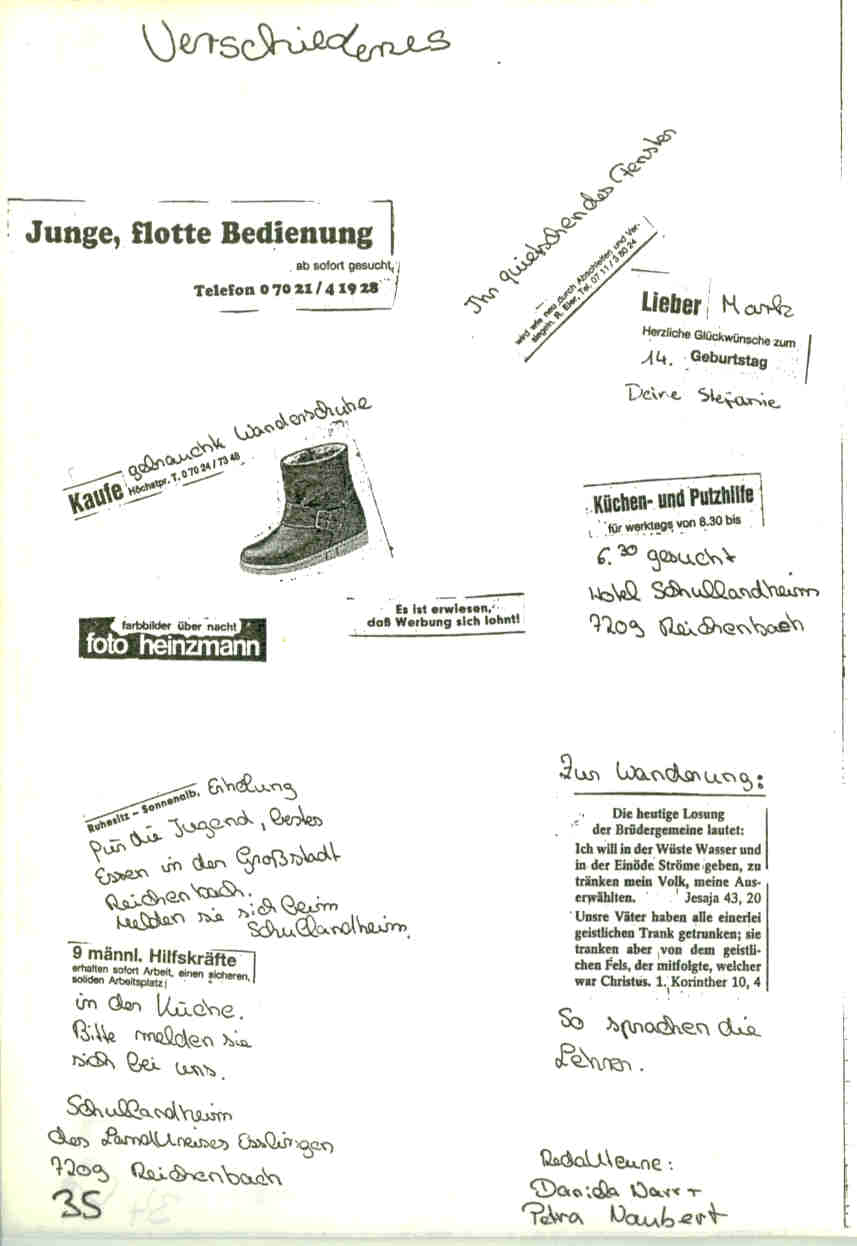 Verschiedenes
Junge, flotte Bedienung
ab sofort gesucht,
Telefon 0 70 21 / 4 19 28
Ihr quietschendes Fenster
wird wie neu durch Abschleifen und Ver-
siegeln. R. Eier, Tel. 07 11 / 3 80 24
Lieber Mark
Herzliche Glückwünsche zum
14. Geburtstag
Deine Stefanie
gebrauchte Wanderschuhe
Kaufe Höchstpr. T. 0 70 24 / 73 48
Küchen- und Putzhilfe
für werktags von 8.30 bis
6.30 gesucht
Hotel Schullandheim
7209 Reichenbach
farbbilder über nacht
foto heinzmann
Es ist erwiesen,
daß Werbung sich lohnt!
Ruhesitz – Sonnenalb, Erholung
für die Jugend, bestes
Essen in der Großstadt
Reichenbach.
Melden sie sich beim
Schullandheim.
9 männl. Hilfskräfte
erhalten sofort Arbeit, einen sicheren,
soliden Arbeitsplatz!
in der Küche.
Bitte melden sie
sich bei uns.
Schullandheim
des Landkreises Esslingen
7209 Reichenbach
35
Zur Wanderung:
Die heutige Losung
der Brüdergemeine lautet:
Ich will in der Wüste Wasser und
in der Einöde Ströme geben, zu
tränken mein Volk, meine Aus-
erwählten. Jesaja 43, 20
Unsre Väter haben alle einerlei
geistlichen Trank getrunken; sie
tranken aber von dem geistli-
chen Fels, der mitfolgte, welcher
war Christus. 1. Korinther 10, 4
So sprachen die
Lehrer.
Redakteure:
Daniela Narr +
Petra Naubert